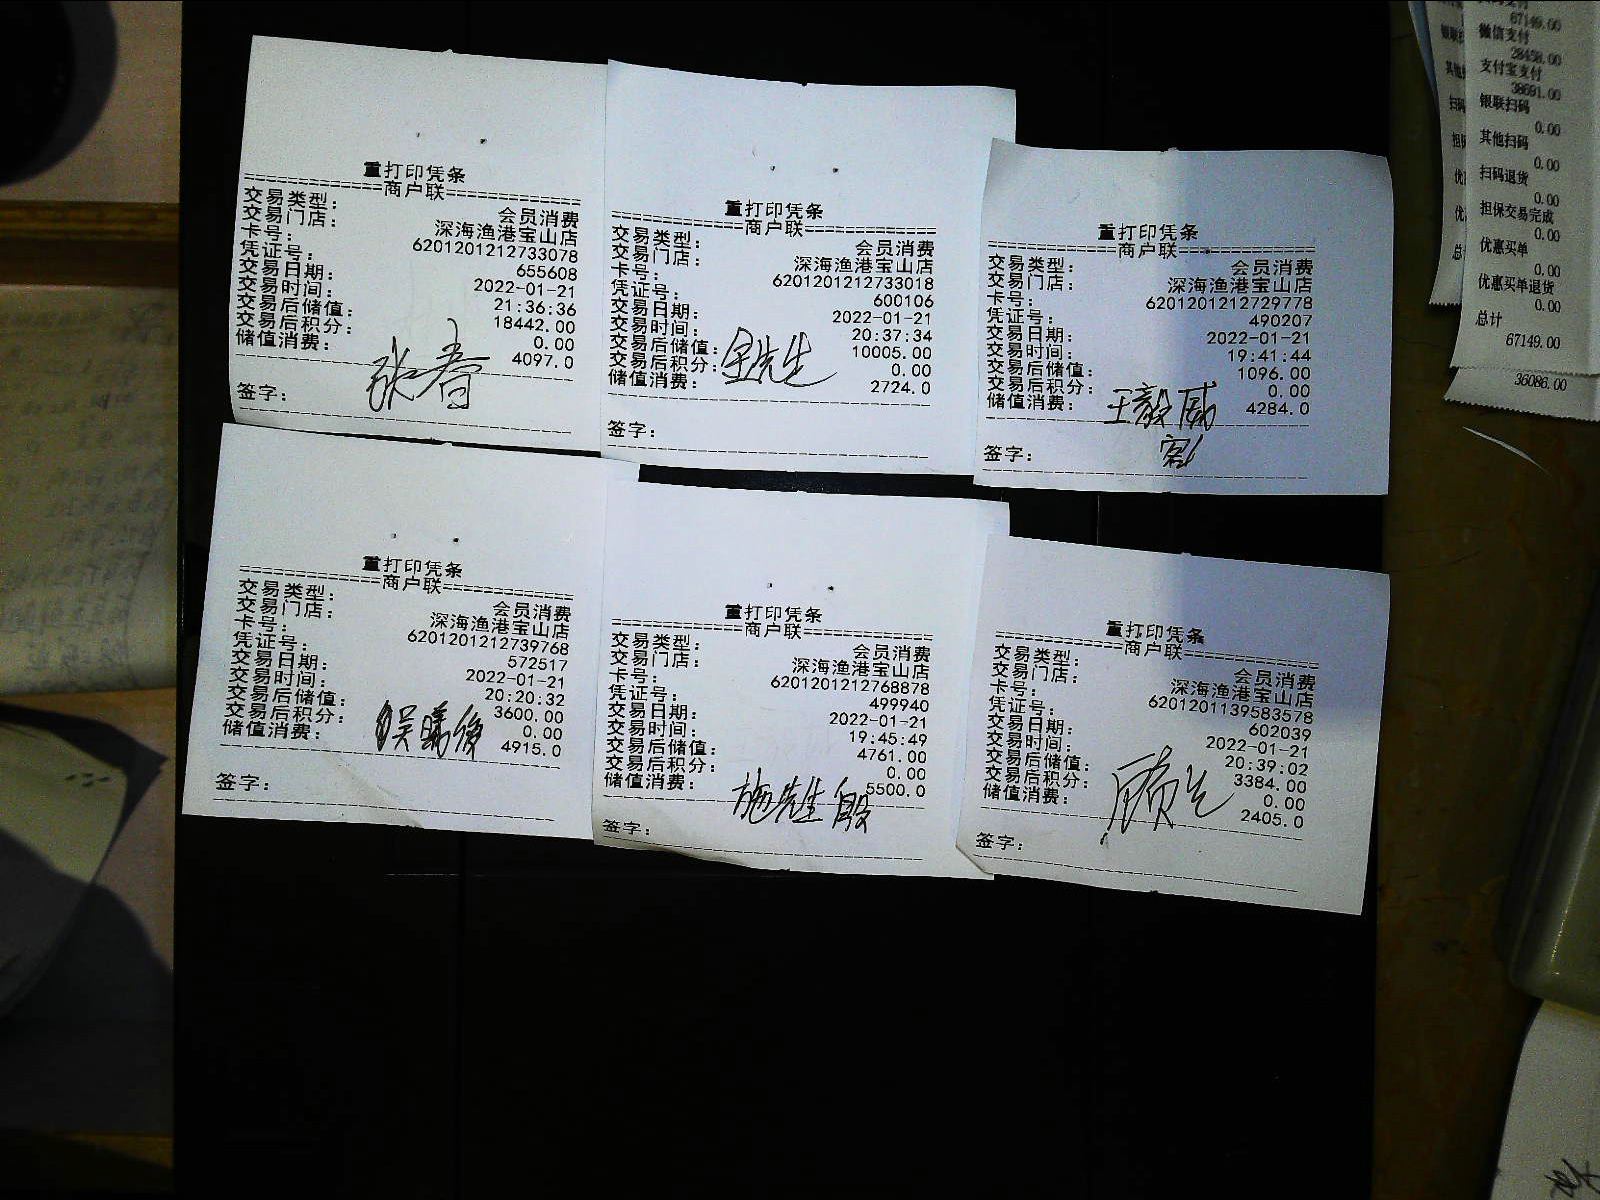 重打印凭条
==========商户联==========
交易类型: 会员消费
交易门店: 深海渔港宝山店
卡号: 6201201212733078
凭证号: 655608
交易日期: 2022-01-21
交易时间: 21:36:36
交易后储值: 18442.00
交易后积分: 0.00
储值消费: 4097.0
张春
签字:
重打印凭条
==========商户联==========
交易类型: 会员消费
交易门店: 深海渔港宝山店
卡号: 6201201212733018
凭证号: 600106
交易日期: 2022-01-21
交易时间: 20:37:34
交易后储值: 10005.00
交易后积分: 0.00
储值消费: 2724.0
金先生
签字:
重打印凭条
==========商户联==========
交易类型: 会员消费
交易门店: 深海渔港宝山店
卡号: 6201201212729778
凭证号: 490207
交易日期: 2022-01-21
交易时间: 19:41:44
交易后储值: 1096.00
交易后积分: 0.00
储值消费: 4284.0
王毅威
签字:
重打印凭条
==========商户联==========
交易类型: 会员消费
交易门店: 深海渔港宝山店
卡号: 6201201212739768
凭证号: 572517
交易日期: 2022-01-21
交易时间: 20:20:32
交易后储值: 3600.00
交易后积分: 0.00
储值消费: 4915.0
签字:
重打印凭条
==========商户联==========
交易类型: 会员消费
交易门店: 深海渔港宝山店
卡号: 6201201212768878
凭证号: 499940
交易日期: 2022-01-21
交易时间: 19:45:49
交易后储值: 4761.00
交易后积分: 0.00
储值消费: 5500.0
施先生
签字:
重打印凭条
==========商户联==========
交易类型: 会员消费
交易门店: 深海渔港宝山店
卡号: 6201201139583578
凭证号: 602039
交易日期: 2022-01-21
交易时间: 20:39:02
交易后储值: 3384.00
交易后积分: 0.00
储值消费: 2405.0
签字:
67149.00
微信支付
28458.00
支付宝支付
38691.00
银联扫码
0.00
其他扫码
0.00
扫码退货
0.00
担保交易完成
0.00
优惠买单
0.00
优惠买单退货
0.00
总计
67149.00
36086.00